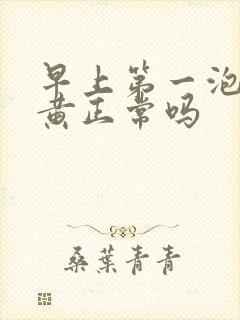 早上第一泡
黄正常吗
桑葉青青